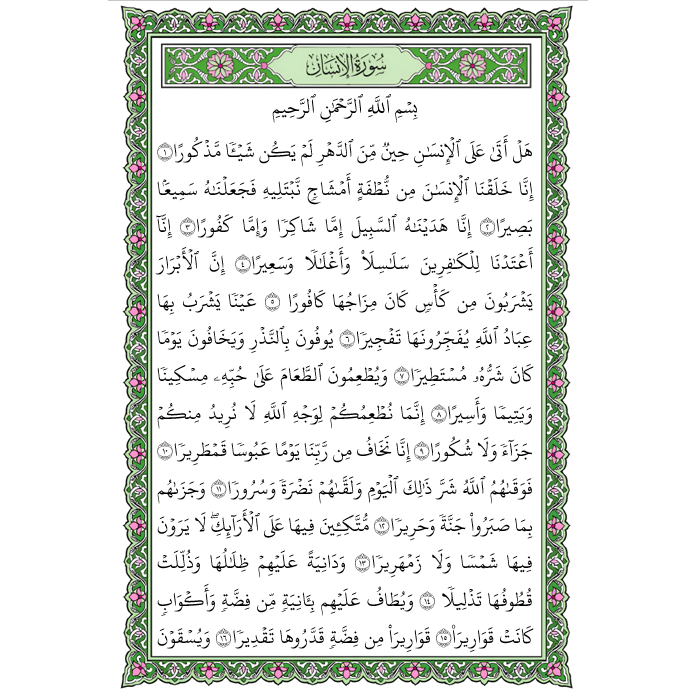 سُورَةُ الإِنسَانِ
بِسْمِ ٱللَّهِ ٱلرَّحْمَٰنِ ٱلرَّحِيمِ
هَلْ أَتَىٰ عَلَى ٱلْإِنسَٰنِ حِينٌ مِّنَ ٱلدَّهْرِ لَمْ يَكُن شَيْـًٔا مَّذْكُورًا ١
إِنَّا خَلَقْنَا ٱلْإِنسَٰنَ مِن نُّطْفَةٍ أَمْشَاجٍ نَّبْتَلِيهِ فَجَعَلْنَٰهُ سَمِيعًۢا
بَصِيرًا ٢ إِنَّا هَدَيْنَٰهُ ٱلسَّبِيلَ إِمَّا شَاكِرًا وَإِمَّا كَفُورًا ٣ إِنَّآ
أَعْتَدْنَا لِلْكَٰفِرِينَ سَلَٰسِلَا۟ وَأَغْلَٰلًا وَسَعِيرًا ٤ إِنَّ ٱلْأَبْرَارَ
يَشْرَبُونَ مِن كَأْسٍ كَانَ مِزَاجُهَا كَافُورًا ٥ عَيْنًا يَشْرَبُ بِهَا
عِبَادُ ٱللَّهِ يُفَجِّرُونَهَا تَفْجِيرًا ٦ يُوفُونَ بِٱلنَّذْرِ وَيَخَافُونَ يَوْمًا
كَانَ شَرُّهُۥ مُسْتَطِيرًا ٧ وَيُطْعِمُونَ ٱلطَّعَامَ عَلَىٰ حُبِّهِۦ مِسْكِينًا
وَيَتِيمًا وَأَسِيرًا ٨ إِنَّمَا نُطْعِمُكُمْ لِوَجْهِ ٱللَّهِ لَا نُرِيدُ مِنكُمْ
جَزَآءً وَلَا شُكُورًا ٩ إِنَّا نَخَافُ مِن رَّبِّنَا يَوْمًا عَبُوسًا قَمْطَرِيرًا ١٠
فَوَقَىٰهُمُ ٱللَّهُ شَرَّ ذَٰلِكَ ٱلْيَوْمِ وَلَقَّىٰهُمْ نَضْرَةً وَسُرُورًا ١١ وَجَزَىٰهُم
بِمَا صَبَرُوا۟ جَنَّةً وَحَرِيرًا ١٢ مُّتَّكِـِٔينَ فِيهَا عَلَى ٱلْأَرَآئِكِ ۖ لَا يَرَوْنَ
فِيهَا شَمْسًا وَلَا زَمْهَرِيرًا ١٣ وَدَانِيَةً عَلَيْهِمْ ظِلَٰلُهَا وَذُلِّلَتْ
قُطُوفُهَا تَذْلِيلًا ١٤ وَيُطَافُ عَلَيْهِم بِـَٔانِيَةٍ مِّن فِضَّةٍ وَأَكْوَابٍ
كَانَتْ قَوَارِيرَا۠ ١٥ قَوَارِيرَا۟ مِن فِضَّةٍ قَدَّرُوهَا تَقْدِيرًا ١٦ وَيُسْقَوْنَ